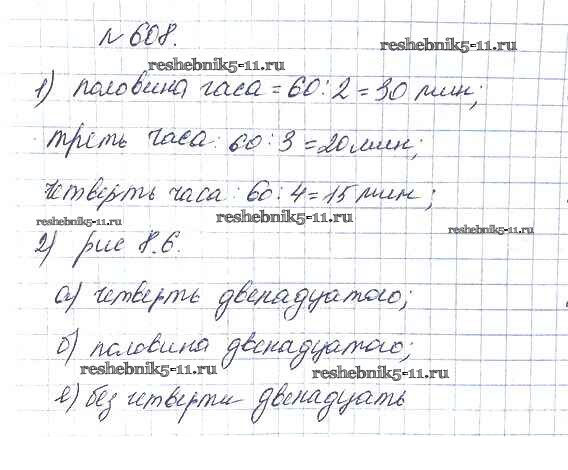 № 608.
reshebnik5-11.ru
reshebnik5-11.ru
1) половина часа = 60 : 2 = 30 мин;
треть часа: 60 : 3 = 20 мин;
четверть часа: 60 : 4 = 15 мин;
reshebnik5-11.ru
reshebnik5-11.ru
reshebnik5-11.ru
2) рис 8.6.
а) четверть двенадцатого;
б) половина двенадцатого;
reshebnik5-11.ru
reshebnik5-11.ru
в) без четверти двенадцать